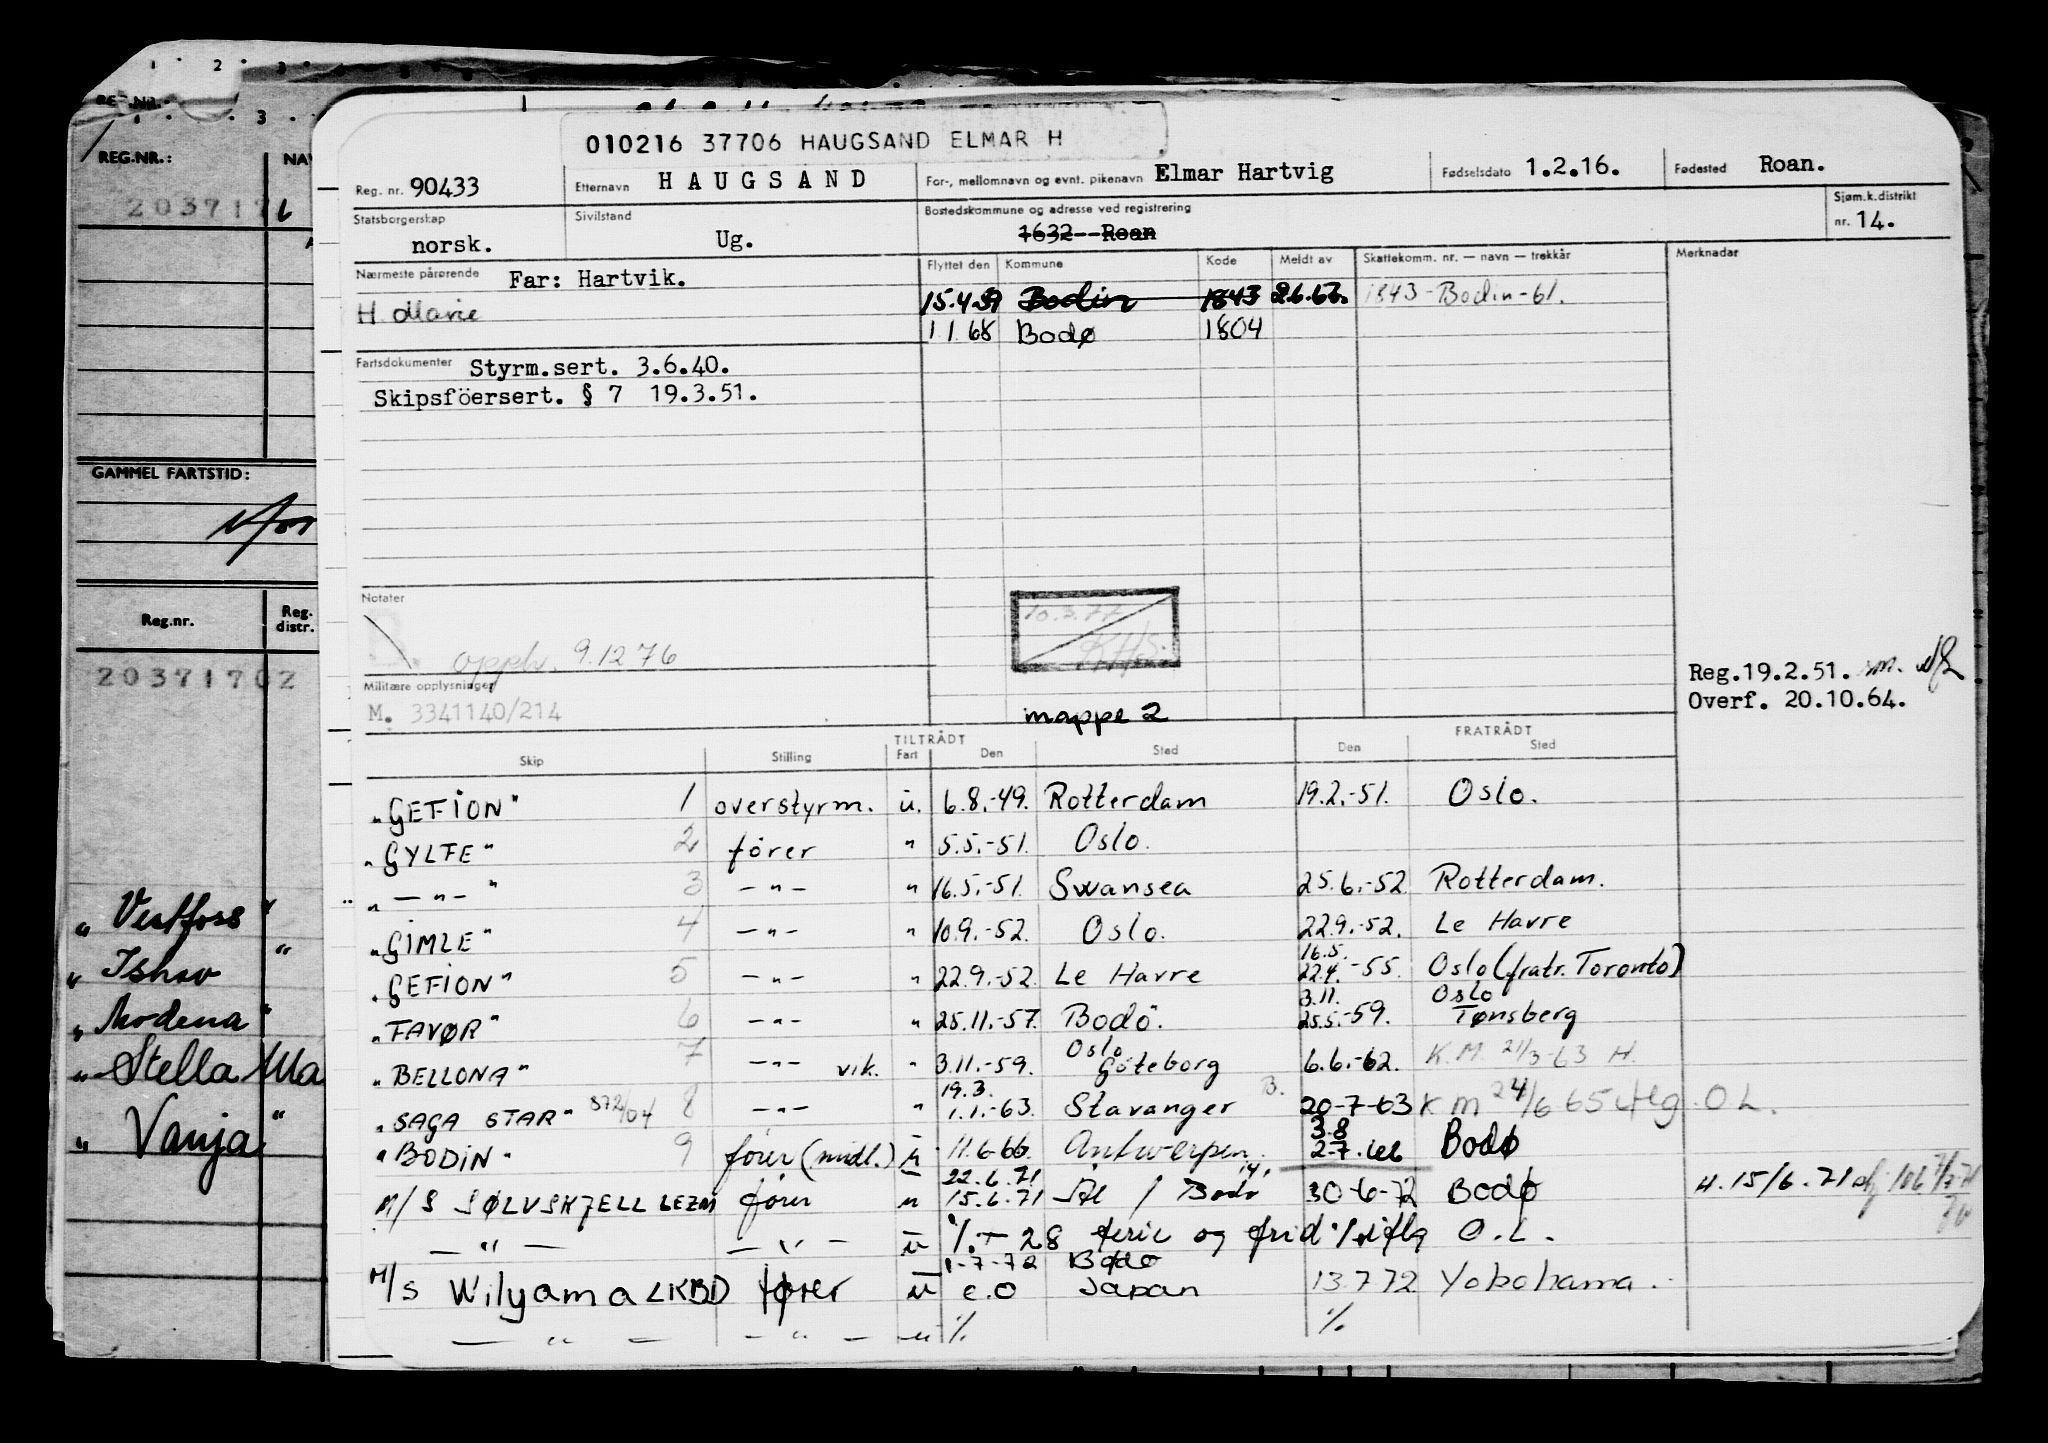 1 2 3
REG.NR.
3
REG.NR.: NAV
2037171
GAMMEL FARTSTID:
Reg.nr. Reg. distr.
20371702
„ Vestfoss "
„ Ishav "
„ Modena "
„ Stella Ma
„ Vanja "
010216 37706 HAUGSAND ELMAR H
Reg. nr. 90433 Etternavn HAUGSAND For-, mellomnavn og evnt. pikenavn Elmar Hartvig Fødselsdato 1.2.16. Fødested Roan.
Statsborgerskap norsk. Sivilstand Ug. Bostedskommune og adresse ved registrering 1632--Roan Sjøm.k.distrikt nr. 14.
Nærmeste pårørende Far: Hartvik. Flyttet den Kommune Kode Meldt av Skattekomm. nr. — navn — trekkår Merknader
H. Marie 15.4.59 Bodin 1843 26.67. 1843-Bodin-61.
1 1 68 Bodø 1804
Fartsdokumenter Styrm.sert. 3.6.40.
Skipsföersert. § 7 19.3.51.
Notater
10.3.77
opph. 9.12 76
Militære opplysninger
M. 3341140/214
mappe 2
Reg.19.2.51. sm.
Overf. 20.10.64.
TILTRÅDT FRATRÅDT
Skip Stilling Fart Den Sted Den Sted
„GEFION" 1 overstyrm. u. 6.8.-49. Rotterdam 19.2.-51. Oslo.
„GYLFE" 2 förer " 5.5.-51. Oslo.
„ — " — " 3 — " — " 16.5.-51. Swansea 25.6.-52 Rotterdam.
„GIMLE" 4 — " — " 10.9.-52. Oslo. 22.9.-52. Le Havre
16.5.
„GEFION" 5 — " — " 22.9.-52. Le Havre 22.4.-55. Oslo (fratr. Toronto)
3.11. Oslo
„FAVØR" 6 — " — " 25.11.-57. Bodö. 25.5.-59. Tønsberg
Oslo
„BELLONA" 7 — " — vik. " 3.11.-59. Göteborg 6.6.-62. K.M. 21/3-63 H.
19.3.
„SAGA STAR" 372/04 8 — " — " 1.1.-63. Stavanger B. 20-7-63 K M 24/6 65 O L.
3.8
"BODIN" 9 förer (midl.) u 11.6-66. Antwerpen. 2-7.66 Bodø
22.6.71
M/S SØLVSKJELL LEZM förer u 15.6.71 / Bodø 30-6-72 Bodø H. 15/6.71
— " — — " — u %. — 28 ferie og frid. O.L.
1-7-72 Bodø
M/S Wilyama LKBD fører u e.o Japan 13.7 72 Yokohama.
— " — — " — u % %